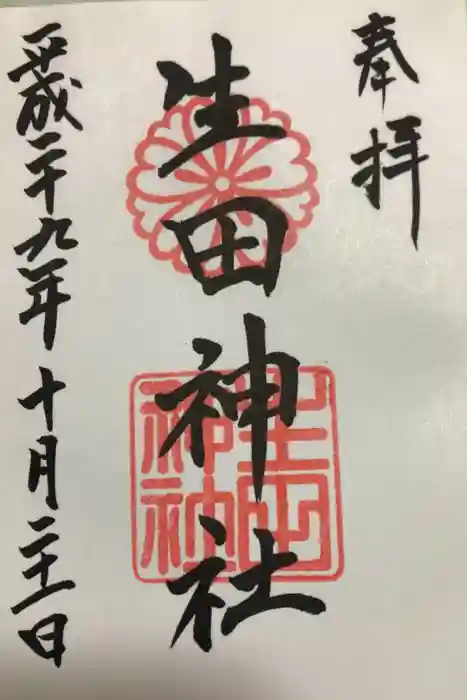 奉拝
生田神社
生田
神社
平成二十九年十月二十一日